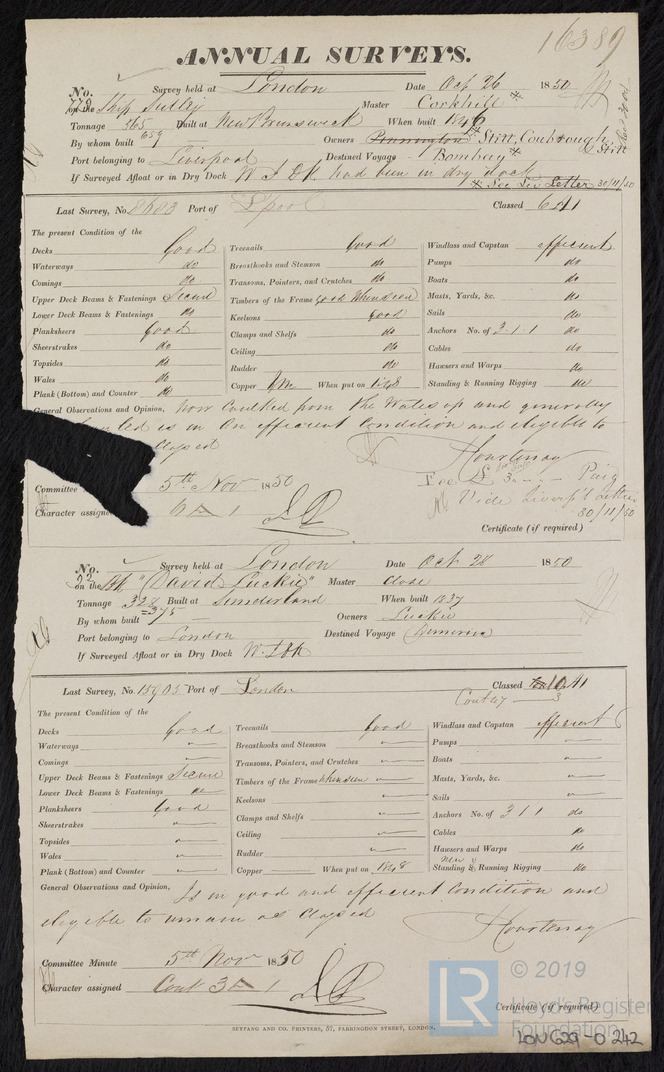 16389
ANNUAL SURVEYS.
No. 779 Survey held at London Date Oct 26 1850
on the Ship Sutlej Master Corkhill
Tonnage 565 Built at New Brunswick When built 1846
659
By whom built Owners Pennington Stitt, Coubrough, & Stitt
Port belonging to Liverpool Destined Voyage Bombay
If Surveyed Afloat or in Dry Dock W I Dk had been in dry dock
See Liv Letter 30/11/50
Last Survey, No. 8683 Port of Lpool Classed 6 A1
The present Condition of the
Decks Good
Waterways do
Comings do
Upper Deck Beams & Fastenings Secure
Lower Deck Beams & Fastenings do
Planksheers Good
Sheerstrakes do
Topsides do
Wales do
Plank (Bottom) and Counter do
Treenails Good
Breasthooks and Stemson do
Transoms, Pointers, and Crutches do
Timbers of the Frame Good When seen
Keelsons Good
Clamps and Shelfs do
Ceiling do
Rudder do
Copper YM When put on 1848
Windlass and Capstan efficient
Pumps do
Boats do
Masts, Yards, &c. do
Sails do
Anchors No. of 3-1-1 do
Cables do
Hawsers and Warps do
Standing & Running Rigging do
General Observations and Opinion, Now Caulked from the Wales up and generally
is in an efficient Condition and eligible to
Classed
Courtenay
Fee £3 Paid
Vide Liverpl Letter
30/11/50
Committee 5th Nov 1850
Character assigned 6 A 1
Certificate (if required)
No. 22 Survey held at London Date Oct 28 1850
on the Bk "David Luckie" Master Close
Tonnage 328 Built at Sunderland When built 1837
375
By whom built Owners Luckie
Port belonging to London Destined Voyage Demerara
If Surveyed Afloat or in Dry Dock W. I Dk
Last Survey, No. 15905 Port of London Classed 10 A1
Cont 47 3
The present Condition of the
Decks Good
Waterways
Comings
Upper Deck Beams & Fastenings Secure
Lower Deck Beams & Fastenings do
Planksheers Good
Sheerstrakes
Topsides
Wales
Plank (Bottom) and Counter
Treenails Good
Breasthooks and Stemson
Transoms, Pointers, and Crutches
Timbers of the Frame When seen
Keelsons
Clamps and Shelfs
Ceiling
Rudder
Copper When put on 1848
Windlass and Capstan efficient
Pumps
Boats
Masts, Yards, &c.
Sails
Anchors No. of 3 1 1 do
Cables do
Hawsers and Warps do
New
Standing & Running Rigging do
General Observations and Opinion, Is in good and efficient Condition and
eligible to remain as Classed
Courtenay
Committee Minute 5th Nov 1850
Character assigned Cont 3 A 1
Certificate (if required)
SEYFANG AND CO. PRINTERS, 57, FARRINGDON STREET, LONDON.
LR © 2019
Lloyd's Register
Foundation
LON 629-0242